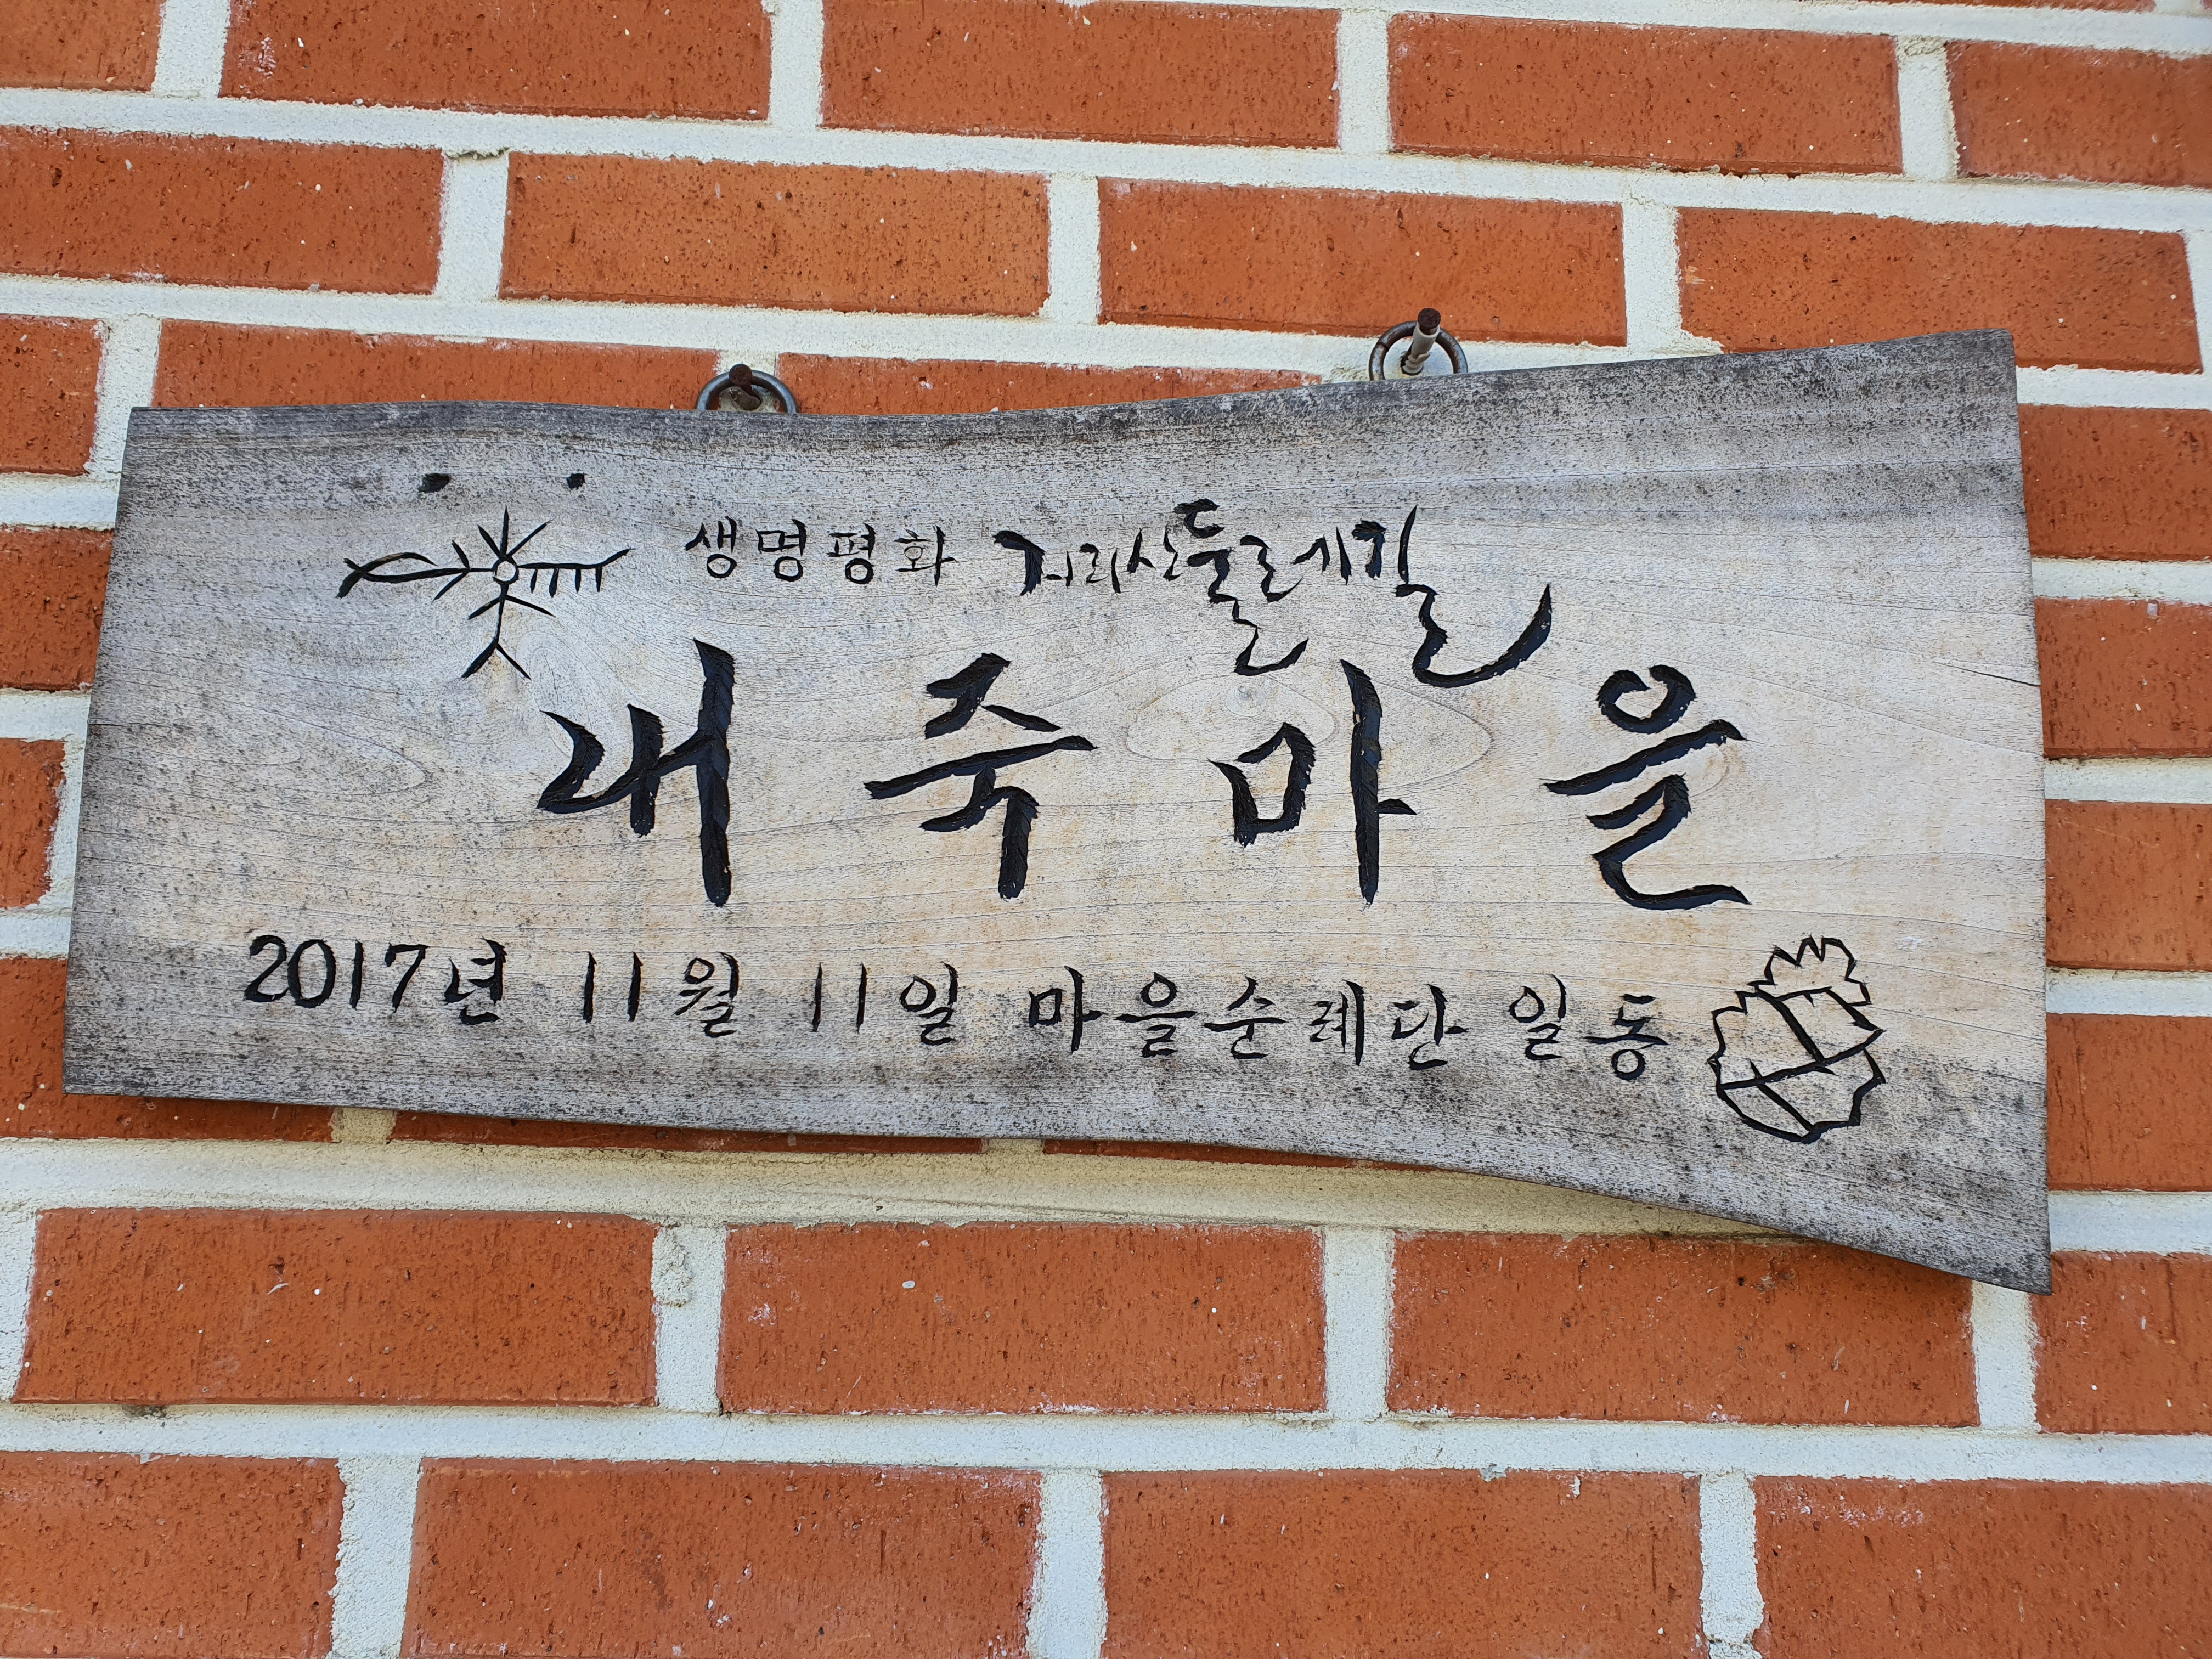 생명평화 지리산둘레길
내죽마을
2017년 11월 11일 마을순례단 일동